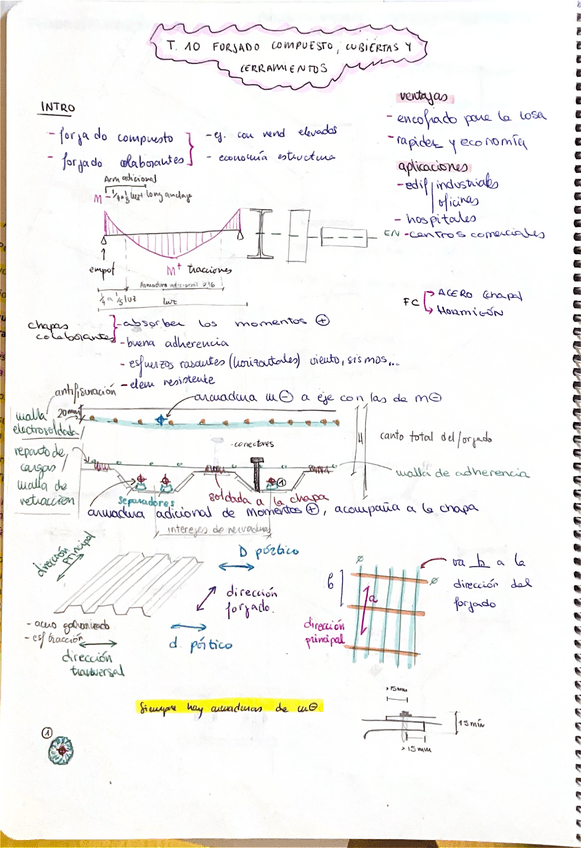 T. 10 FORJADO COMPUESTO, CUBIERTAS Y
CERRAMIENTOS
INTRO
- forjado compuesto
- forjado colaborantes
- ej. con rend elevados
- economía estructura
ventajas
- encofrado para la losa
- rapidez y economía
aplicaciones
- edif industriales
oficinas
- hospitales
- centros comerciales
Arm adicional
M-
long anclaje
EN
empot
M+ tracciones
Armadura adicional
1/4 a 1/5 luz
luz
FC
ACERO (chapa)
HORMIGÓN
chapas
colaborantes
- absorber los momentos ⊕
- buena adherencia
- esfuerzos rasantes (horizontales) viento, sismos,...
- elem resistente
antifisuración
armadura m⊖ a eje con las de m⊖
malla
electrosoldada
20mm
reparto de
cargas
malla de
retracción
- conectores
canto total del forjado
malla de adherencia
separadores
soldada a la chapa
1
armadura adicional de momentos ⊕, acompaña a la chapa
intereje de nervadura
dirección
principal
D pórtico
dirección
forjado.
d pórtico
- acero galvanizado
- esf tracción
dirección
trasversal
b
a
Ø
Ø
dirección
principal
va b a la
dirección del
forjado
Siempre hay armaduras de m⊖
>15mm
15 mín
>15mm
1